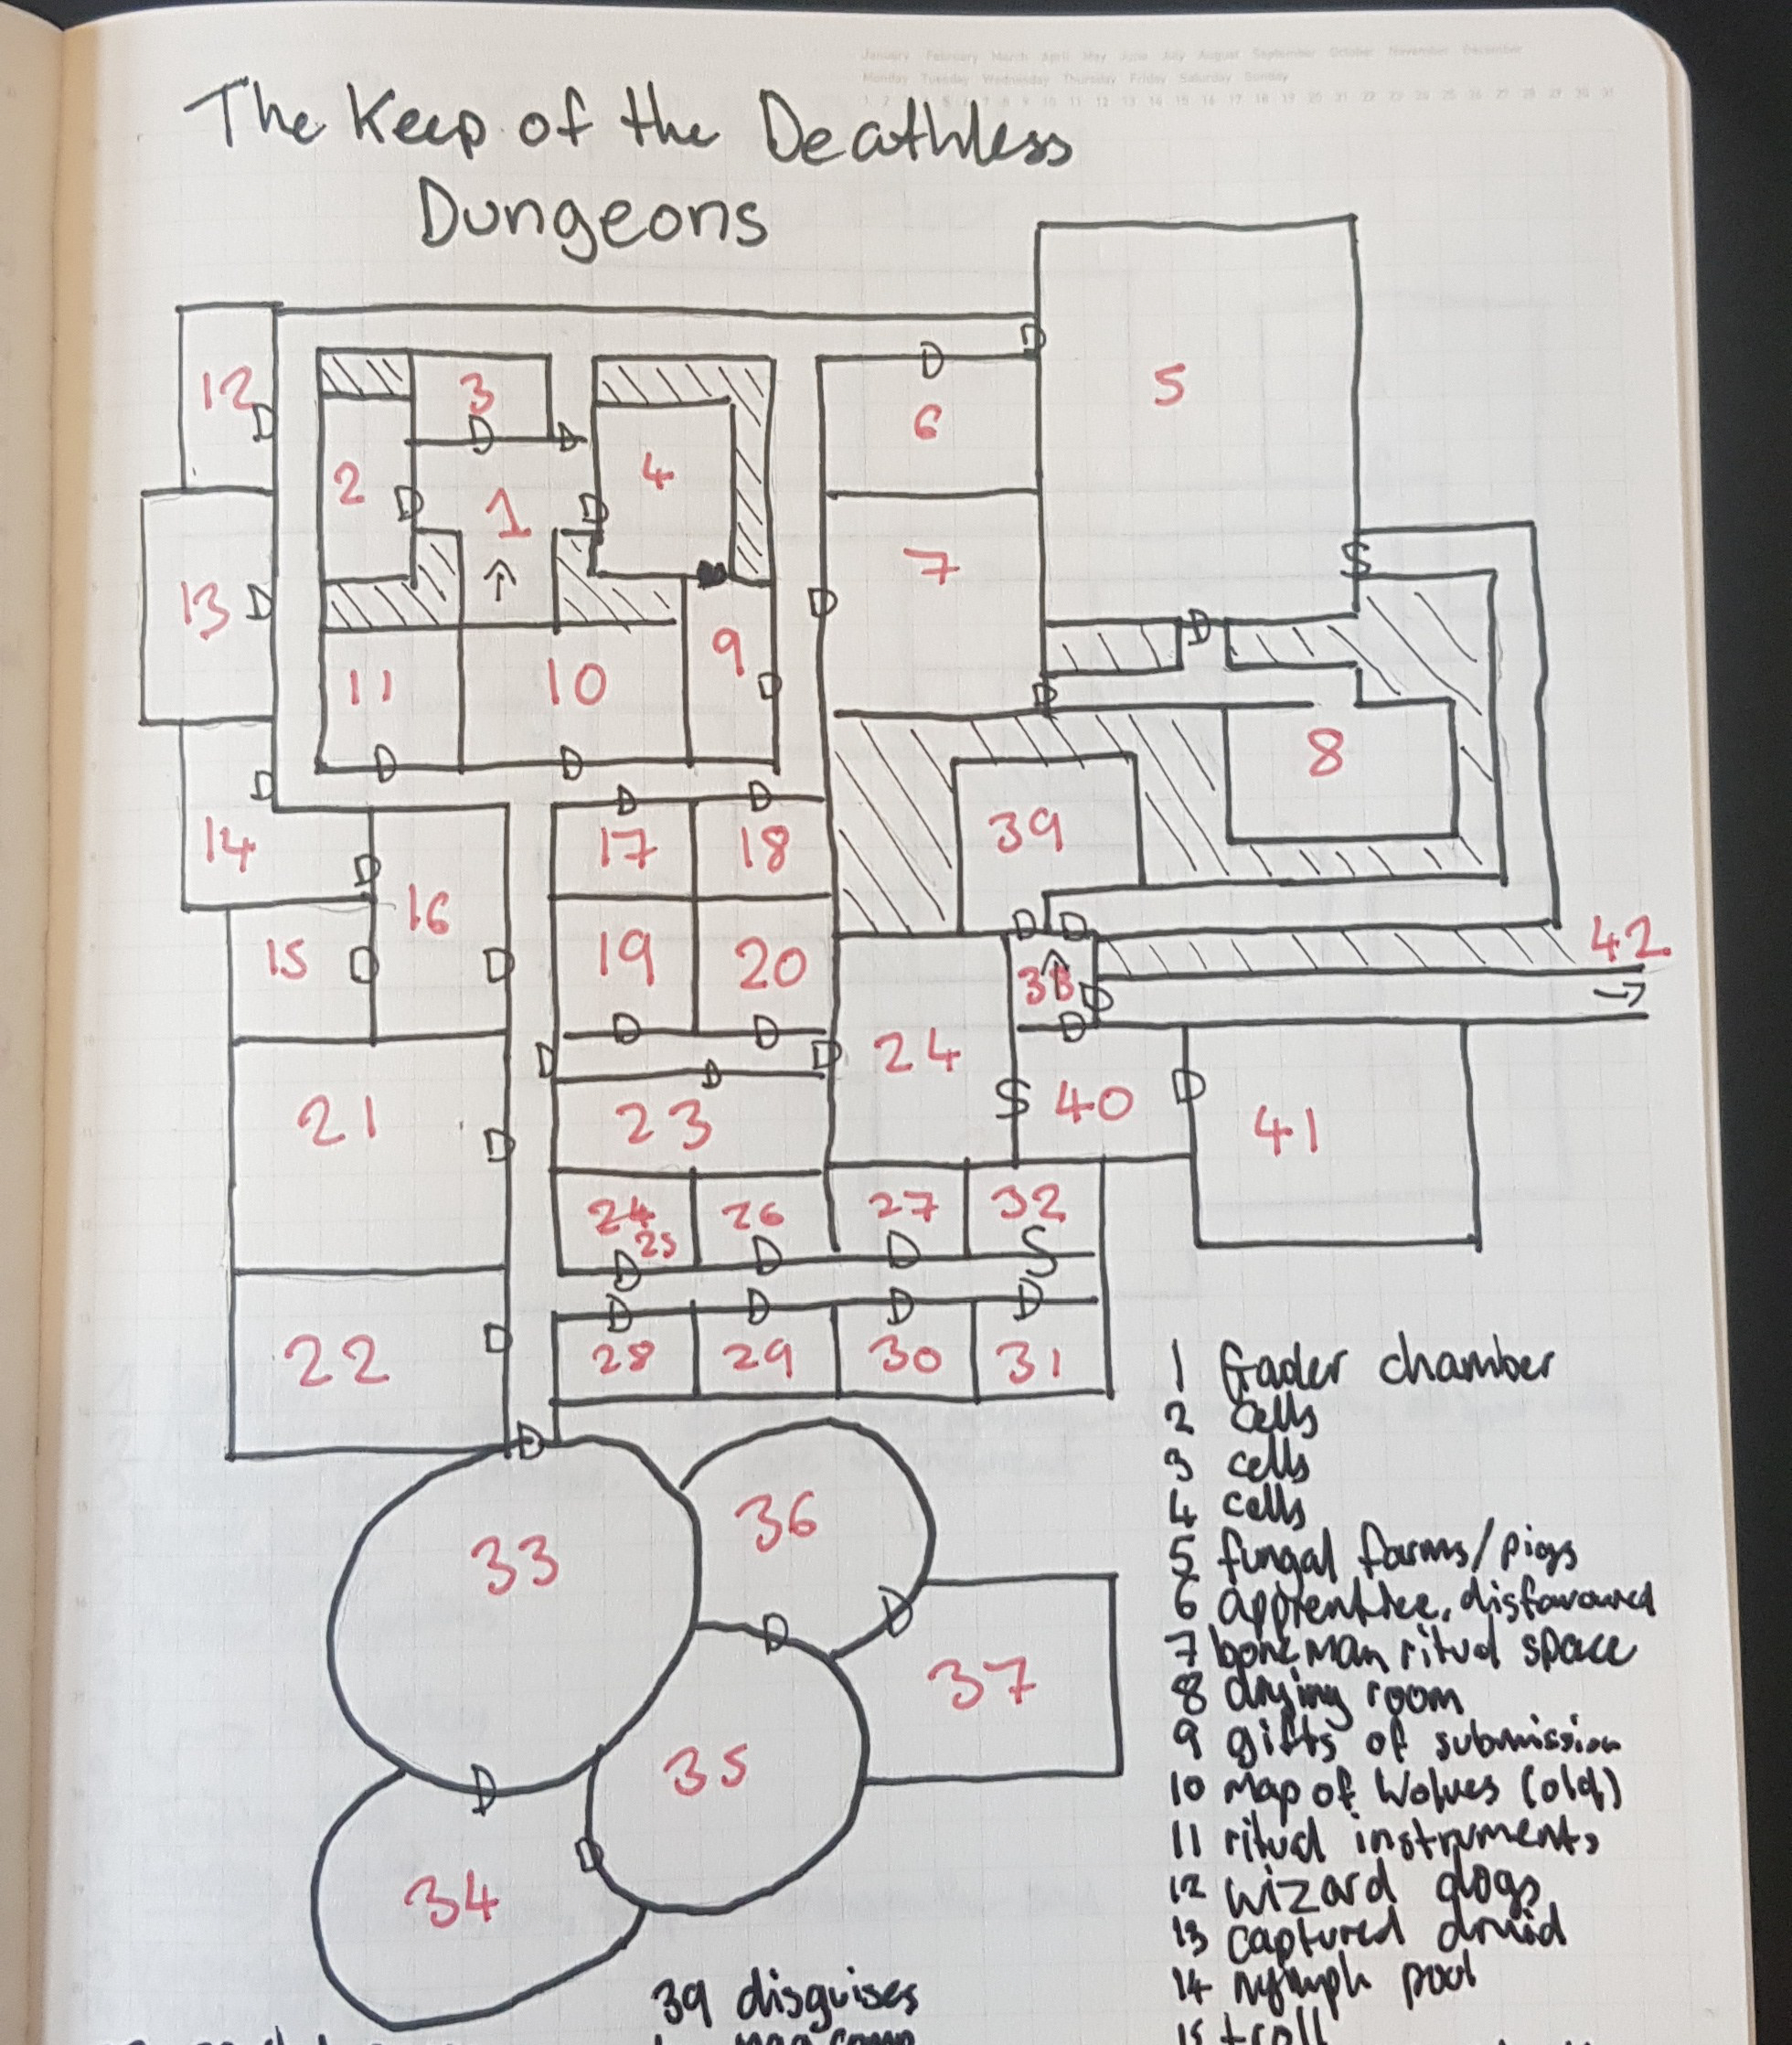 January February March April May June July August September October November December
Monday Tuesday Wednesday Thursday Friday Saturday Sunday
1 2 3 4 5 6 7 8 9 10 11 12 13 14 15 16 17 18 19 20 21 22 23 24 25 26 27 28 29 30 31
The Keep of the Deathless
Dungeons
D
5
D
12
3
6
D
D
D
4
2
D
D
1
D
7
S
13
D
D
D
9
11
10
D
D
8
D
D
D
D
D
14
17
18
39
D
16
15
D
D
19
20
D
D
42
38
D
D
D
D
D
24
D
D
23
S
40
D
41
21
D
24
25
26
27
32
D
D
D
S
D
D
D
D
22
D
28
29
30
31
D
33
36
D
D
37
35
D
D
34
1 Gaoler chamber
2 cells
3 cells
4 cells
5 fungal farms/pigs
6 apprentice, disfavoured
7 bone man ritual space
8 drying room
9 gifts of submission
10 Map of Wolves (old)
11 ritual instruments
12 wizard dogs
13 captured druid
14 nymph pool
15 troll
39 disguises